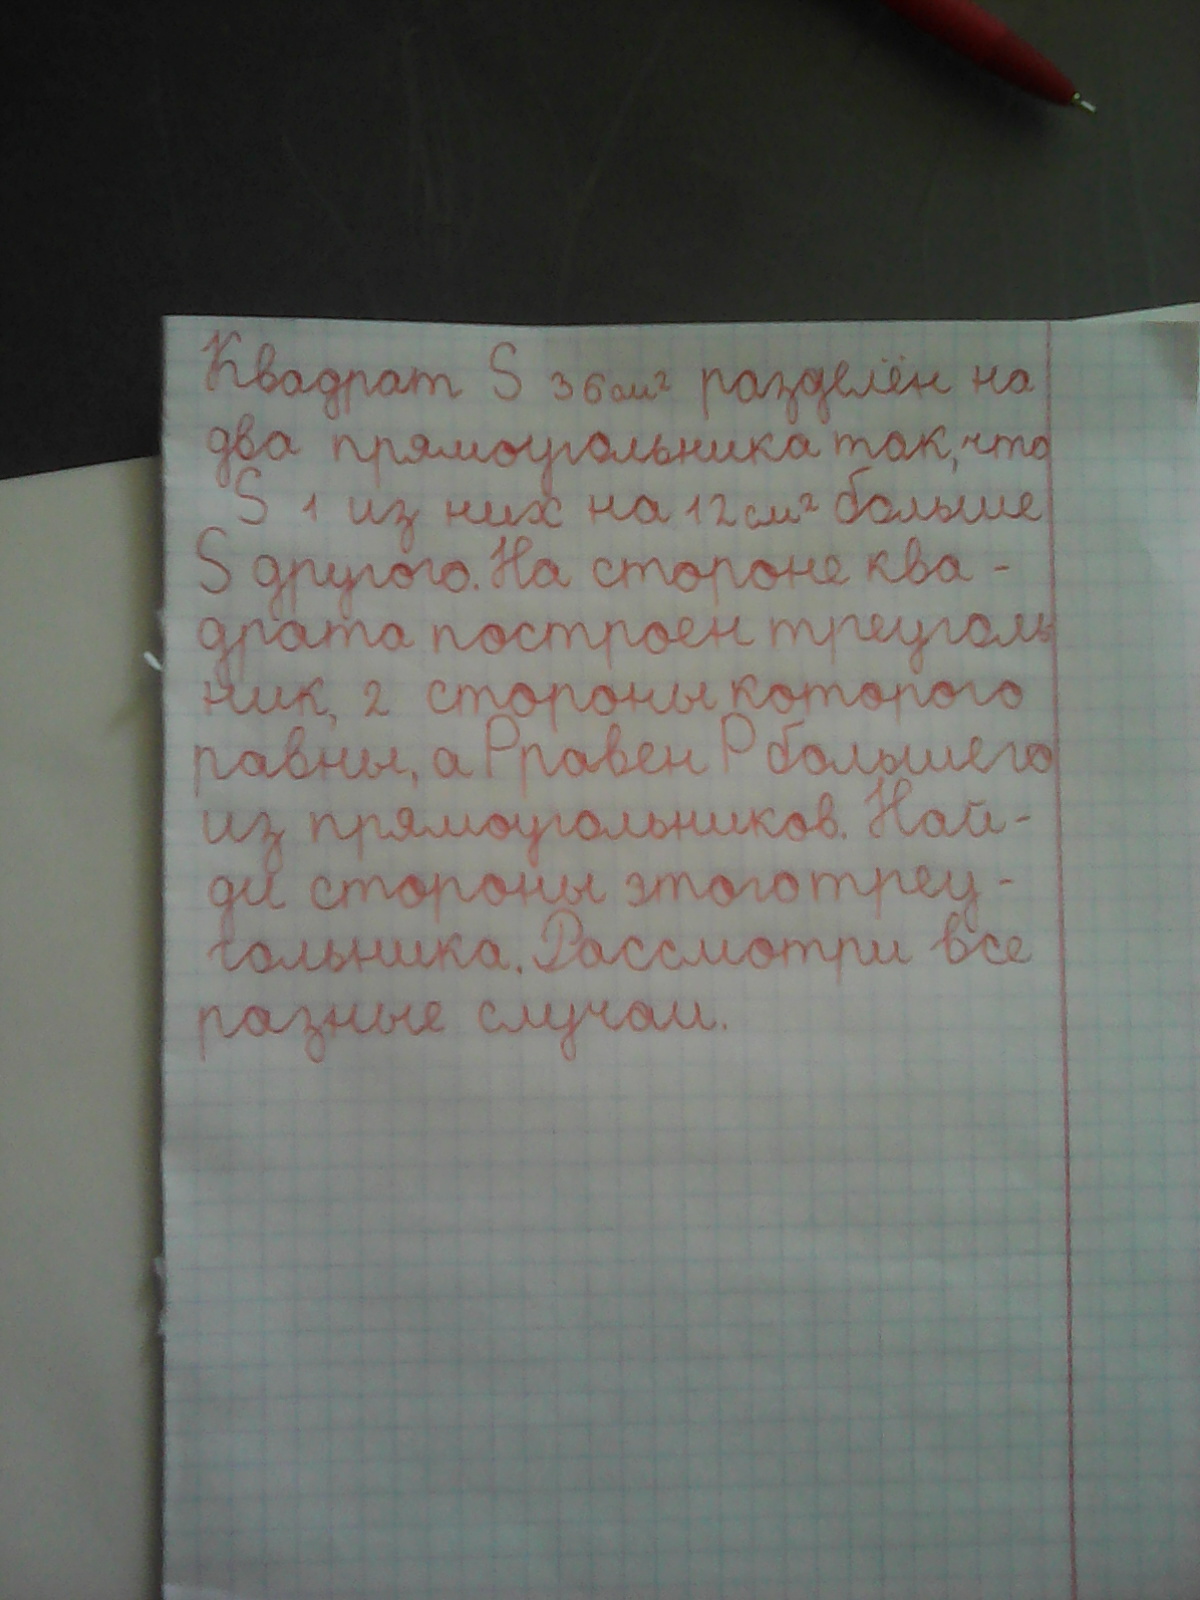 Квадрат S 36 см² разделён на
два прямоугольника так, что
S 1 из них на 12 см² больше
S другого. На стороне ква-
драта построен треуголь
ник, 2 стороны которого
равны, а P равен P большего
из прямоугольников. Най-
ди стороны этого треу-
гольника. Рассмотри все
разные случаи.